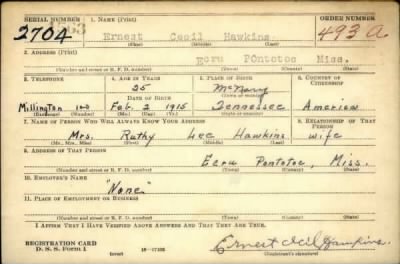 SERIAL NUMBER 1. NAME (Print) ORDER NUMBER
2704 Ernest Cecil Hawkins 493 a.
(First) (Middle) (Last)
2. ADDRESS (Print)
Ecru POntotoc Miss.
(Number and street or R. F. D. number) (Town) (County) (State)
3. TELEPHONE 4. AGE IN YEARS 5. PLACE OF BIRTH 6. COUNTRY OF CITIZENSHIP
25 McNary
DATE OF BIRTH (Town or county)
Millington Feb. 2 1915 Tennessee America
(Exchange) (Number) (Mo.) (Day) (Yr.) (State or country)
7. NAME OF PERSON WHO WILL ALWAYS KNOW YOUR ADDRESS 8. RELATIONSHIP OF THAT PERSON
Mrs. Ruthy Lee Hawkins wife
(Mr., Mrs., Miss) (First) (Middle) (Last)
9. ADDRESS OF THAT PERSON
Ecru Pontotoc, Miss.
(Number and street or R. F. D. number) (Town) (County) (State)
10. EMPLOYER'S NAME
"None"
11. PLACE OF EMPLOYMENT OR BUSINESS
(Number and street or R. F. D. number) (Town) (County) (State)
I AFFIRM THAT I HAVE VERIFIED ABOVE ANSWERS AND THAT THEY ARE TRUE.
REGISTRATION CARD
D. S. S. Form 1 (over) 16-17105 Ernest Cecil Hawkins
(Registrant's signature)